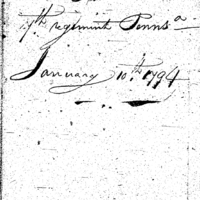 7th regiment Penns a
January 10th 1794